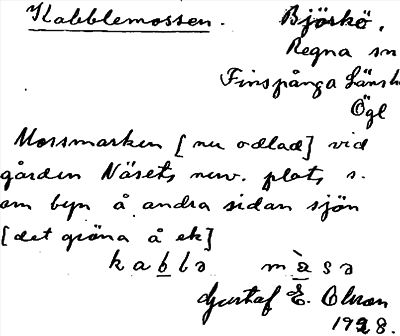 Kabblemossen. Björkö,
Regna sn
Finspånga Länsh
Ögl
Mossmarken [nu odlad] vid
gården Näsets nuv. plats s.
om byn å andra sidan sjön
[det gröna å ek]
kabblə màsə
Gustaf E. Olson
1928.